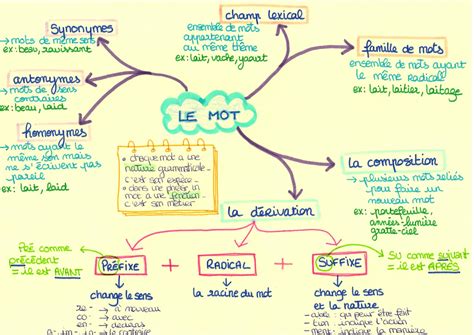 Synonymes
→ mots de même sens
ex: beau, ravissant
antonymes
→ mots de sens
contraires
ex: beau, laid
homonymes
→ mots ayant le
même son mais
ne s'écrivent pas
pareil
ex: lait, laid
champ lexical
ensemble de mots
appartenant
au même thème
ex: lait, vache, yaourt
famille de mots
ensemble de mots ayant
le même radical
ex: lait, laitier, laitage
LE MOT
chaque mot a une
nature grammaticale
c'est son espèce
dans une phrase, un
mot a une fonction
c'est son métier
la composition
→ plusieurs mots reliés
pour faire un
nouveau mot
ex: portefeuille,
années-lumière
gratte-ciel
la dérivation
PRÉ comme
précédent
= il est AVANT
PRÉFIXE + RADICAL + SUFFIXE
SU comme suivant
= il est APRÈS
change le sens
re- → nouveau
co- → avec
en- → dedans
la racine du mot
change le sens
et la nature
-able: qui peut être fait
-tion: indique l'action
-ment: indique la manière